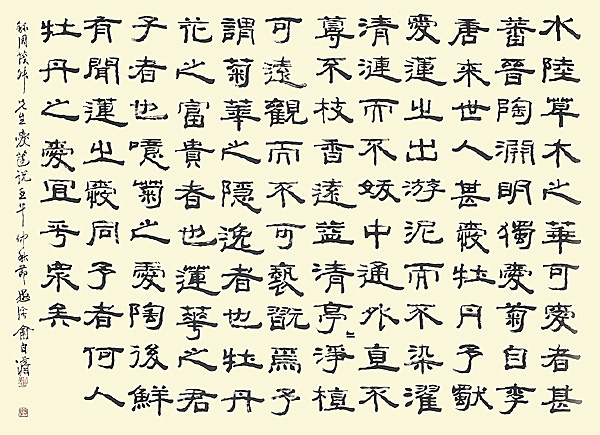 水陸草木之華可愛者甚
蕃晉陶淵明獨愛菊自李
唐來世人甚愛牡丹予獨
愛蓮之出游泥而不染濯
清漣而不妖中通外直不
蔓不枝香遠益清亭〻淨植
可遠觀而不可褻翫焉予
謂菊華之隱逸者也牡丹
花之富貴者也蓮華之君
子者也噫菊之愛陶後鮮
有聞蓮之愛同予者何人
牡丹之愛宜乎衆矣
周茂叔先生愛蓮说仲秋節